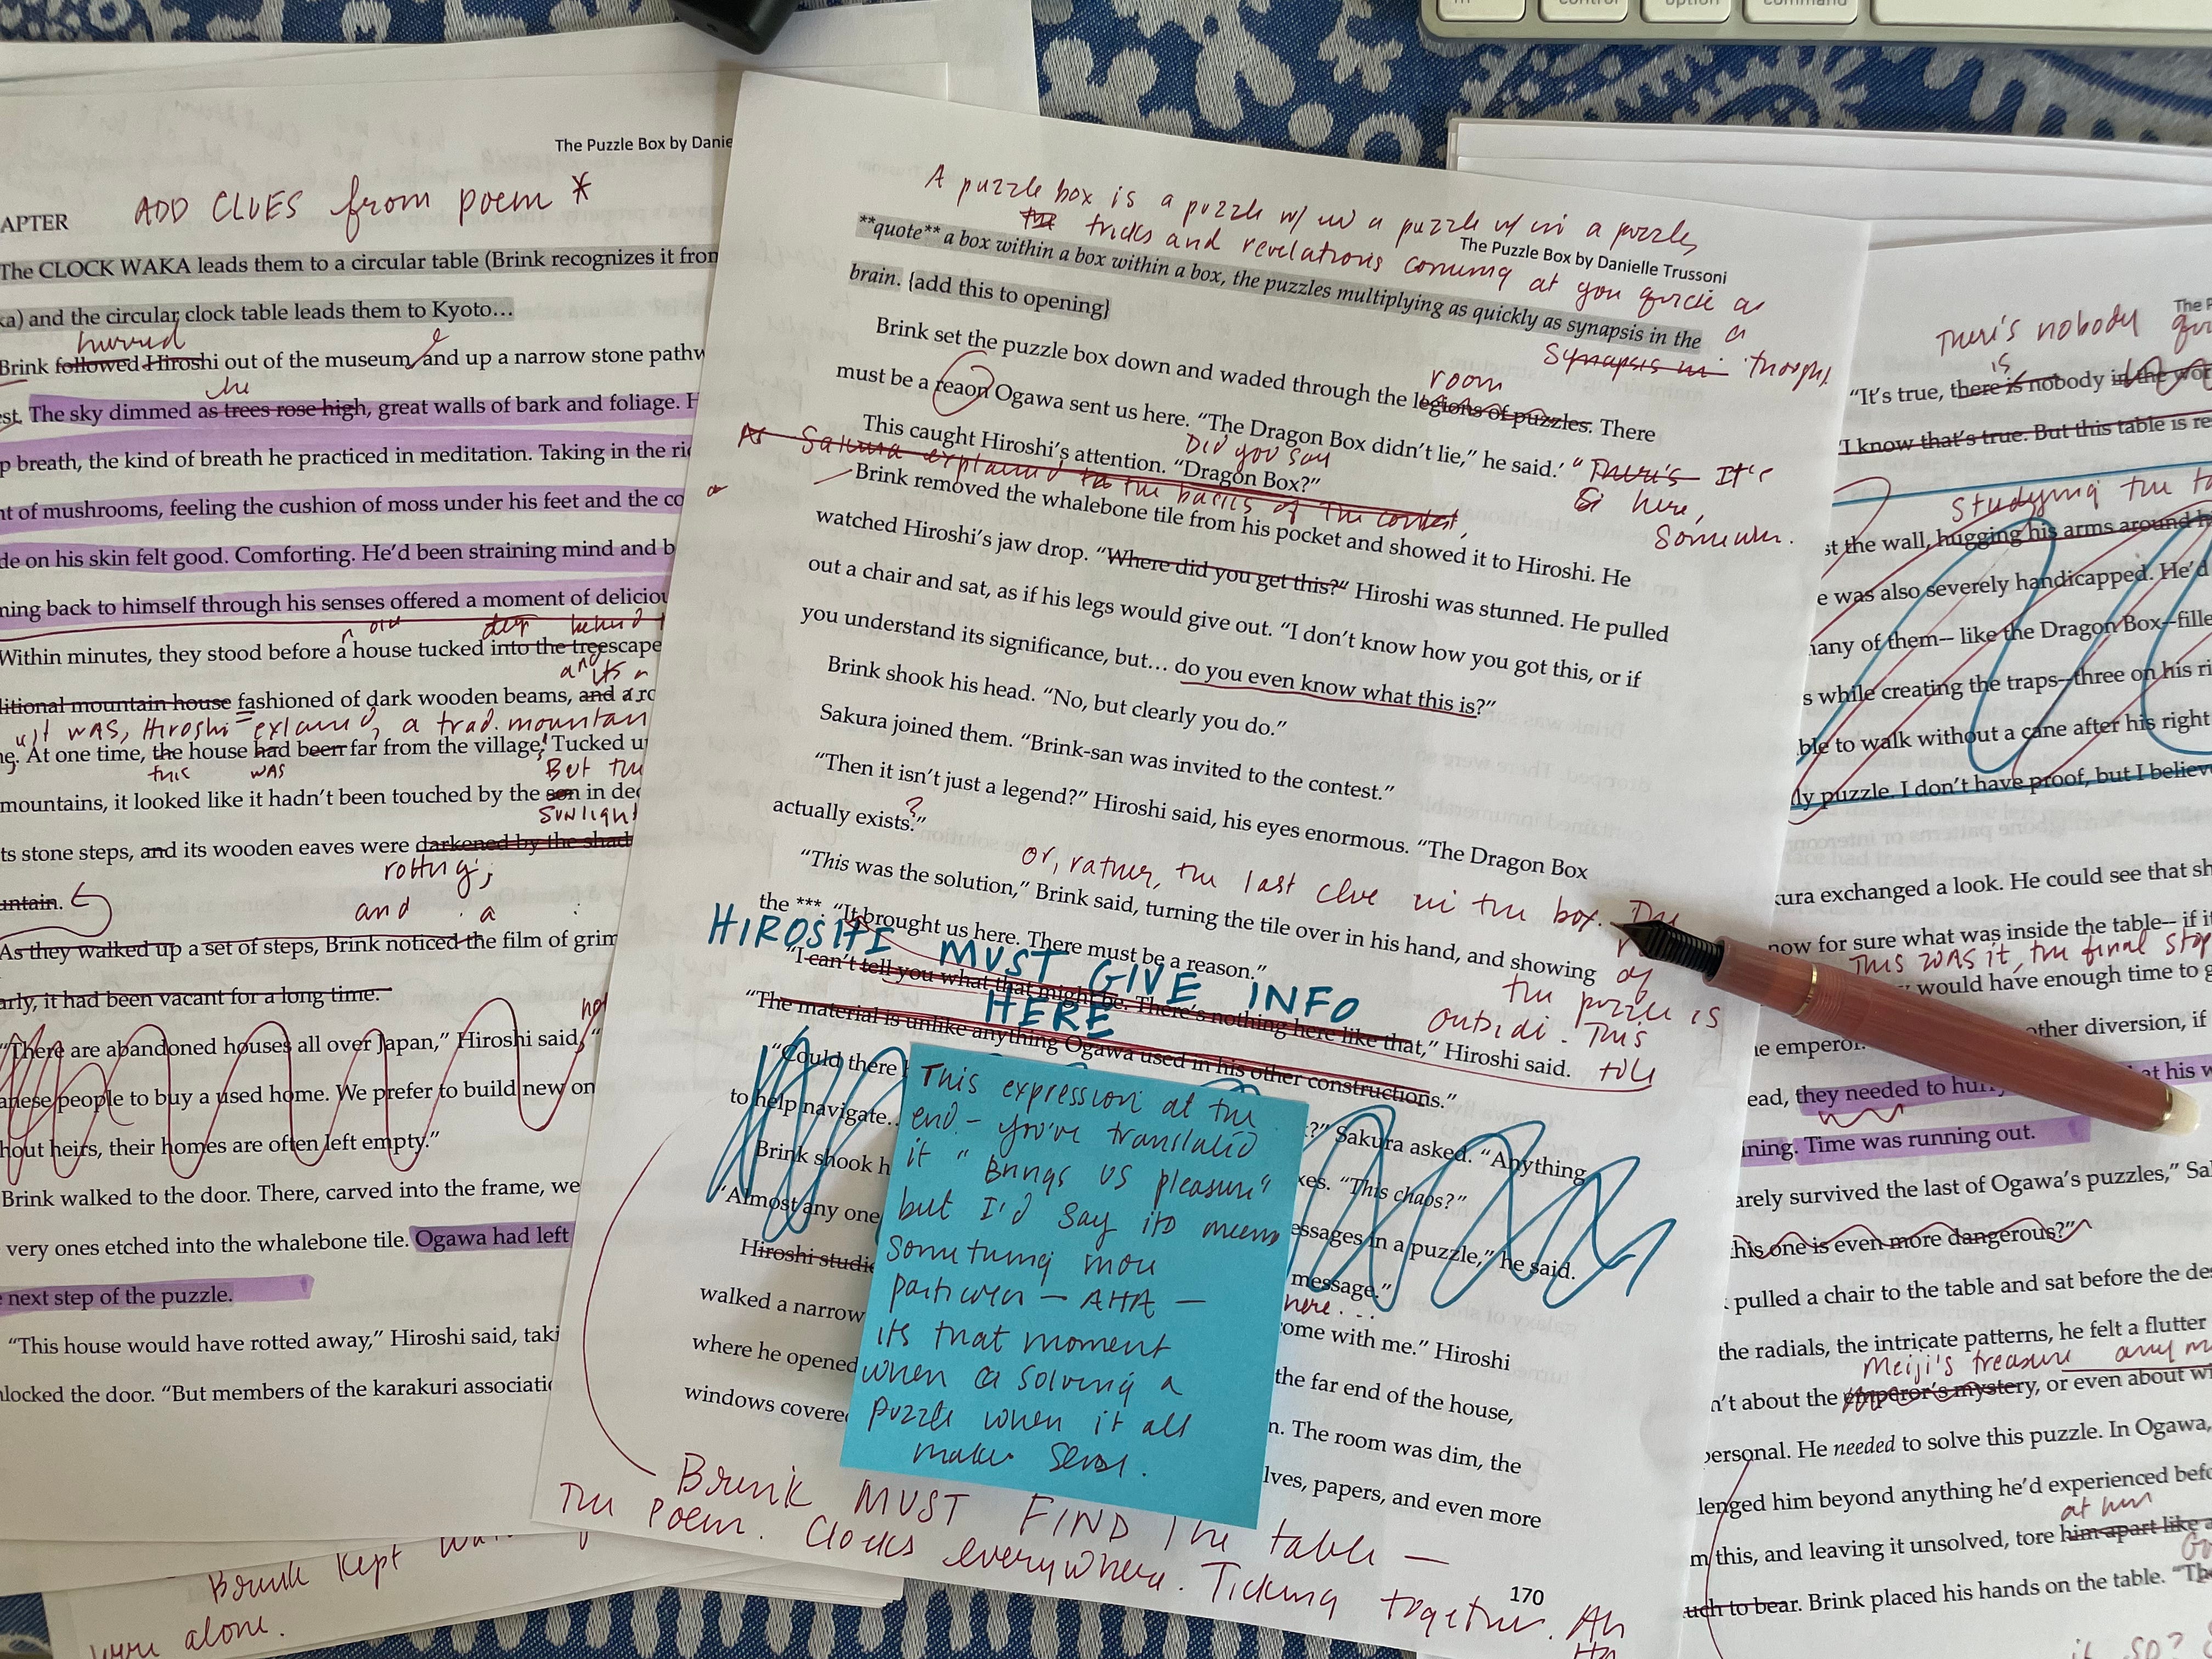 m
control
option
command
The Puzzle Box by Danie
ADD CLUES from poem *
APTER
The CLOCK WAKA leads them to a circular table (Brink recognizes it from
ka) and the circular clock table leads them to Kyoto…
hurried
Brink followed Hiroshi out of the museum, and up a narrow stone pathw
he
est. The sky dimmed as trees rose high, great walls of bark and foliage. H
p breath, the kind of breath he practiced in meditation. Taking in the ri
nt of mushrooms, feeling the cushion of moss under his feet and the co
de on his skin felt good. Comforting. He’d been straining mind and b
ning back to himself through his senses offered a moment of deliciou
n old deep behind
Within minutes, they stood before a house tucked into the treescape
and its
ditional mountain house fashioned of dark wooden beams, and a ro
it was, Hiroshi explained, a trad. mountain
ne. At one time, the house had been far from the village. Tucked u
this was But the
mountains, it looked like it hadn’t been touched by the son in dec
sunlight
ts stone steps, and its wooden eaves were darkened by the shad
rotting;
untain.
and a
As they walked up a set of steps, Brink noticed the film of grim
arly, it had been vacant for a long time.
“There are abandoned houses all over Japan,” Hiroshi said, “
anese people to buy a used home. We prefer to build new on
hout heirs, their homes are often left empty.”
Brink walked to the door. There, carved into the frame, we
very ones etched into the whalebone tile. Ogawa had left
next step of the puzzle.
“This house would have rotted away,” Hiroshi said, taki
nlocked the door. “But members of the karakuri associatio
Brink kept
were alone.
A puzzle box is a puzzle w/in a puzzle w/in a puzzle,
The Puzzle Box by Danielle Trussoni
tricks and revelations coming at you quick as
a
synapsis in thought
**quote** a box within a box within a box, the puzzles multiplying as quickly as synapsis in the
brain. {add this to opening}
room
Brink set the puzzle box down and waded through the legions of puzzles. There
must be a reaon Ogawa sent us here. “The Dragon Box didn’t lie,” he said.
“There's It's
here,
somewhere.
Did you say
This caught Hiroshi’s attention. “Dragon Box?”
As Sakura explained to the basics of the contest,
Brink removed the whalebone tile from his pocket and showed it to Hiroshi. He
watched Hiroshi’s jaw drop. “Where did you get this?“ Hiroshi was stunned. He pulled
out a chair and sat, as if his legs would give out. “I don’t know how you got this, or if
you understand its significance, but… do you even know what this is?”
Brink shook his head. “No, but clearly you do.”
Sakura joined them. “Brink-san was invited to the contest.”
“Then it isn’t just a legend?” Hiroshi said, his eyes enormous. “The Dragon Box
actually exists?”
or, rather, the last clue in the box. The
“This was the solution,” Brink said, turning the tile over in his hand, and showing
of
the puzzle is
outside. This
the ***. “It brought us here. There must be a reason.”
HIROSHI MUST GIVE INFO
HERE
“I can’t tell you what that might be. There’s nothing here like that,” Hiroshi said.
“The material is unlike anything Ogawa used in his other constructions.”
“Could there
?” Sakura asked. “Anything
to help navigate…
Brink shook h
xes. “This chaos?”
“Almost any one
essages in a puzzle,” he said.
Hiroshi studie
message.”
here...
ome with me.” Hiroshi
walked a narrow
the far end of the house,
where he opened
n. The room was dim, the
windows covered
lves, papers, and even more
This expression at the
end - you've translated
it "Brings us pleasure"
but I'd say its means
something more
particular — AHA —
its that moment
when a solving a
puzzle when it all
makes sense.
Brink MUST FIND The table —
The poem. Clocks everywhere. Ticking together. Ah
170
The P
There's nobody
is
“It’s true, there is nobody in the wor
I know that’s true. But this table is re
Studying the ta
st the wall, hugging his arms around h
e was also severely handicapped. He’d
many of them-- like the Dragon Box--fille
s while creating the traps--three on his ri
ble to walk without a cane after his right
ly puzzle. I don’t have proof, but I believe
kura exchanged a look. He could see that sh
now for sure what was inside the table-- if it
This was it, the final step
would have enough time to g
ne emperor.
other diversion, if
ead, they needed to hur
at his w
ning. Time was running out.
arely survived the last of Ogawa’s puzzles,” Sa
this one is even more dangerous?”
pulled a chair to the table and sat before the des
the radials, the intricate patterns, he felt a flutter
Meiji's treasure
n’t about the emperor’s mystery, or even about w
personal. He needed to solve this puzzle. In Ogawa,
lenged him beyond anything he’d experienced befo
at him
m this, and leaving it unsolved, tore him apart like a
uch to bear. Brink placed his hands on the table. “The
if so?